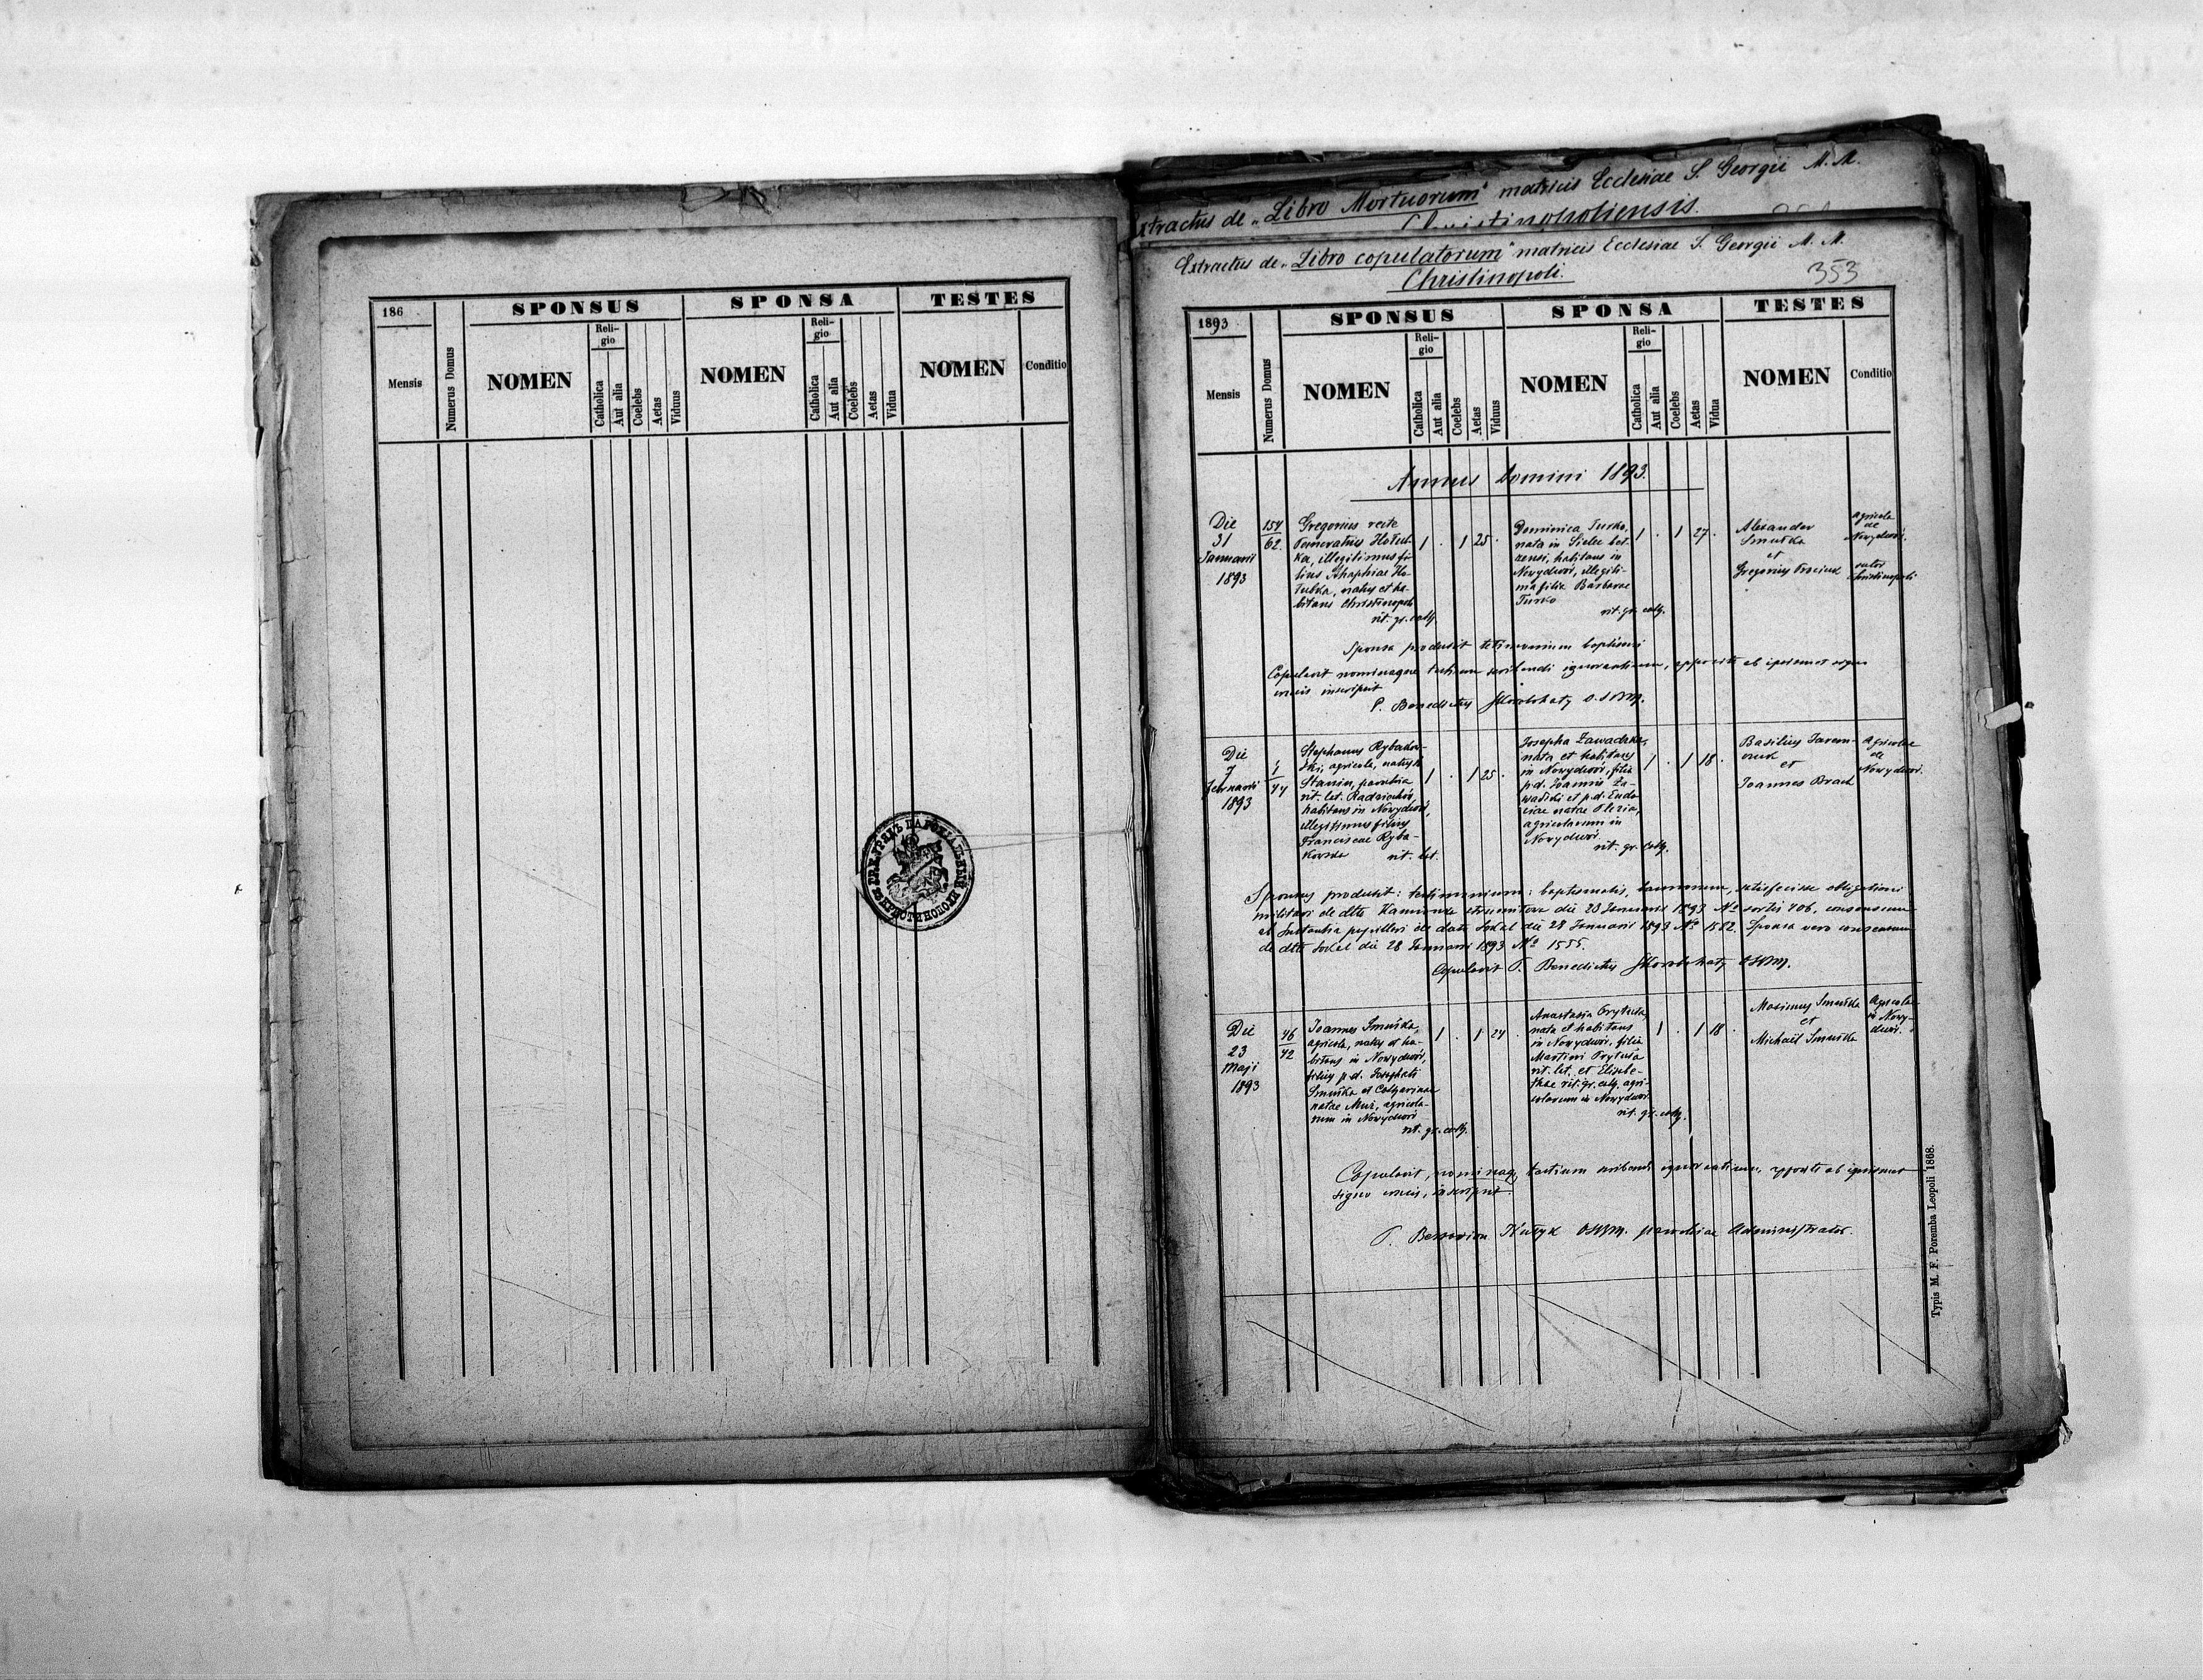 186
SPONSUS
SPONSA
TESTES
Mensis
Numerus Domus
NOMEN
Religio
Catholica
Aut alia
Coelebs
Aetas
Viduus
NOMEN
Religio
Catholica
Aut alia
Coelebs
Aetas
Vidua
NOMEN
Conditio
Extractus de „Libro Mortuorum" matricis Ecclesiae S. Georgii M. M.
Christinopoliensis.
Extractus de „Libro copulatorum" matricis Ecclesiae S. Georgii M. M.
Christinopoli.
353
1893
SPONSUS
SPONSA
TESTES
Mensis
Numerus Domus
NOMEN
Religio
Catholica
Aut alia
Coelebs
Aetas
Viduus
NOMEN
Religio
Catholica
Aut alia
Coelebs
Aetas
Vidua
NOMEN
Conditio
Annus Domini 1893.
Die
31
Januarii
1893
154
62.
Gregorius recte
ka, illegitimus fi-
lius
natus et ha-
bitans Christinopoli
rit. gr. cath.
1 . 1 25 .
Dominica Turko,
nata in Sielec
habitans in
Novydwór, illegiti-
ma filia Barbarae
Turko
rit. gr. cath.
1 . 1 27 .
Alexander
Smutka
et
Gregorius
agricola
de
Novydwór.
sutor
Christinopoli
Sponsa produxit testimonium baptismi
Copulavit nominaque testium scribendi ignorantium, apposito ab ipsismet signo
crucis inscripsit
P. Benedictus O.S.B.M.
Die
7
Februarii
1893
44
Stephanus Rybakow-
ski, agricola, natus in
Stanin, parochia
rit. lat. Radziechów,
habitans in Novydwór,
illegitimus filius
Franciscae Ryba-
kowska rit. lat.
1 . 1 25 .
Josepha Zawadzka,
nata et habitans
in Novydwór, filia
p.d. Joannis Za-
wadzki et p.d. Eudo-
ciae natae
agricolarum in
Novydwór.
rit. gr. cath.
1 . 1 18 .
Basilius
et
Joannes
agricolae
de
Novydwór.
Sponsus produxit: testimonium: baptismatis, bannorum, satisfecisse obligationi
militari de dto Kamionka strumiłowa die 28 Januarii 1893 No sortis 406, consensum
ab Instantia pupillari de dato Sokal die 28 Januarii 1893 No 1582. Sponsa vero consensum
de dto Sokal die 28 Januarii 1893 No 1555.
Copulavit P. Benedictus OSBM.
Die
23
Maji
1893
46
42
Joannes Smutka,
agricola, natus et ha-
bitans in Novydwór,
filius p.d. Josephati
Smutka et Catharinae
natae agricola-
rum in Novydwór
rit. gr. cath.
1 . 1 24 .
Anastasia
nata et habitans
in Novydwór, filia
Martini
rit. lat. et Elisabe-
thae rit. gr. cath. agri-
colarum in Novydwór
rit. gr. cath.
1 . 1 18 .
Maximus Smutka
et
Michaël Smutka
Agricolae
in Novy-
dwór.
Copulavit, nominaq. testium scribendi ignorantium, apposito ab ipsismet
signo crucis, inscripsit
P. Bessarion OSBM. parochiae Administrator.
Typis M. F. Poremba Leopoli 1868.